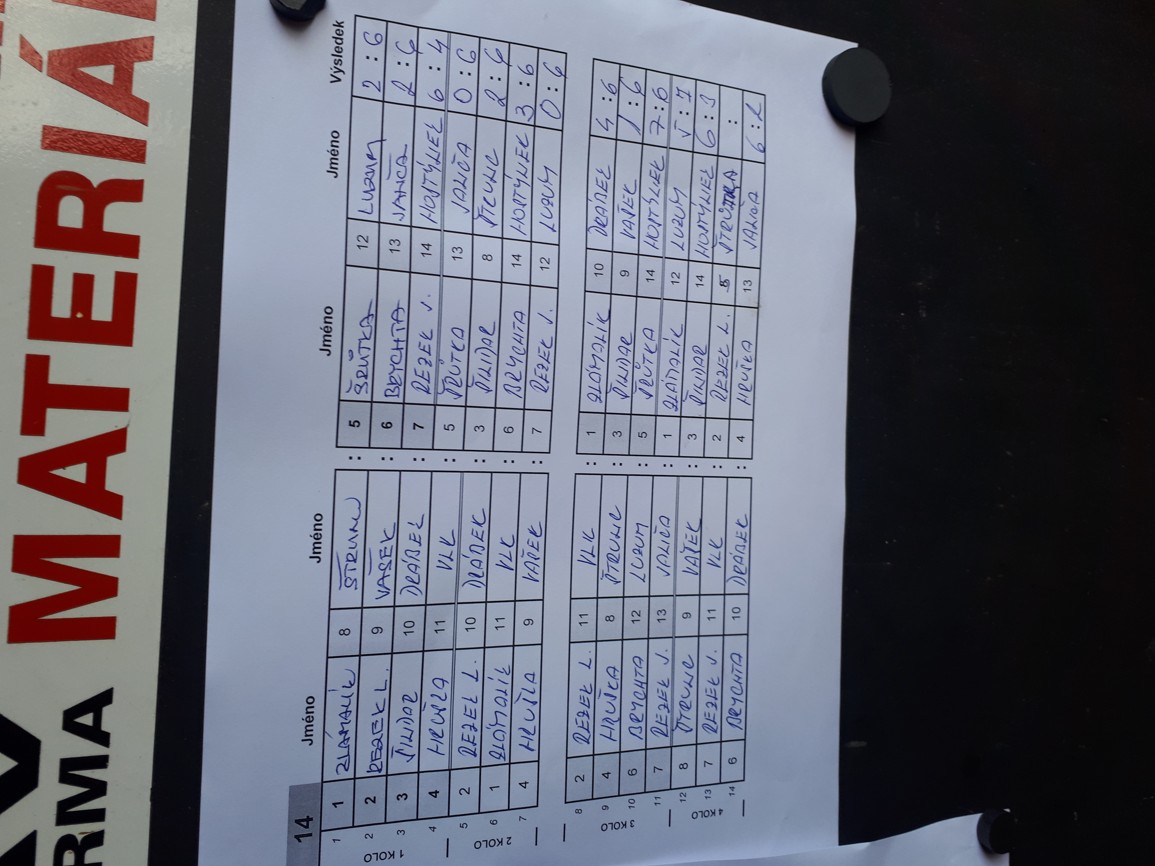 MATERIÁ
RMA
14 Jméno Jméno Jméno Jméno Výsledek
1 1 ZLÁMALÍK 8 ŠTRUNC : 5 ŠRŮTKA 12 LUZUM 2 : 6
2 2 REZEK L. 9 VAŠEK : 6 BRYCHTA 13 JANČA 2 : 6
3 3 ŠINDAR 10 DRÁBEK : 7 REZEK J. 14 HOSTÝNEK 6 : 4
4 4 HRUŠKA 11 VLK : 5 ŠRŮTKA 13 JANČA 0 : 6
5 2 REZEK L. 10 DRÁBEK : 3 ŠINDAR 8 ŠTRUNC 2 : 6
6 1 ZLÁMALÍK 11 VLK : 6 BRYCHTA 14 HOSTÝNEK 3 : 6
7 4 HRUŠKA 9 VAŠEK : 7 REZEK J. 12 LUZUM 0 : 6
1 KOLO
2 KOLO
8 2 REZEK L. 11 VLK : 1 ZLÁMALÍK 10 DRÁBEK 4 : 6
9 4 HRUŠKA 8 ŠTRUNC : 3 ŠINDAR 9 VAŠEK 1 : 6
10 6 BRYCHTA 12 LUZUM : 5 ŠRŮTKA 14 HOSTÝNEK 7 : 6
11 7 REZEK J. 13 JANČA : 1 ZLÁMALÍK 12 LUZUM 5 : 7
12 8 ŠTRUNC 9 VAŠEK : 3 ŠINDAR 14 HOSTÝNEK 6 : 3
13 7 REZEK J. 11 VLK : 2 REZEK L. 5 :
14 6 BRYCHTA 10 DRÁBEK : 4 HRUŠKA 13 JANČA 6 : 2
3 KOLO
4 KOLO